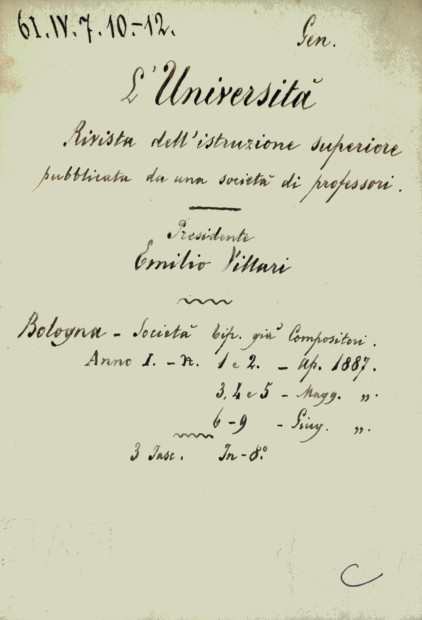 61.IV.7.10.-12.
Gen.
L'Università
Rivista dell'istruzione superiore
pubblicata da una società di professori.
Presidente
Emilio Villari
Bologna - Società tip. già Compositori.
Anno I. - n. 1 e 2. - Ap. 1887.
3, 4 e 5 - Magg. „.
6-9 - Giug. „.
3 Fasc. In-8°
C